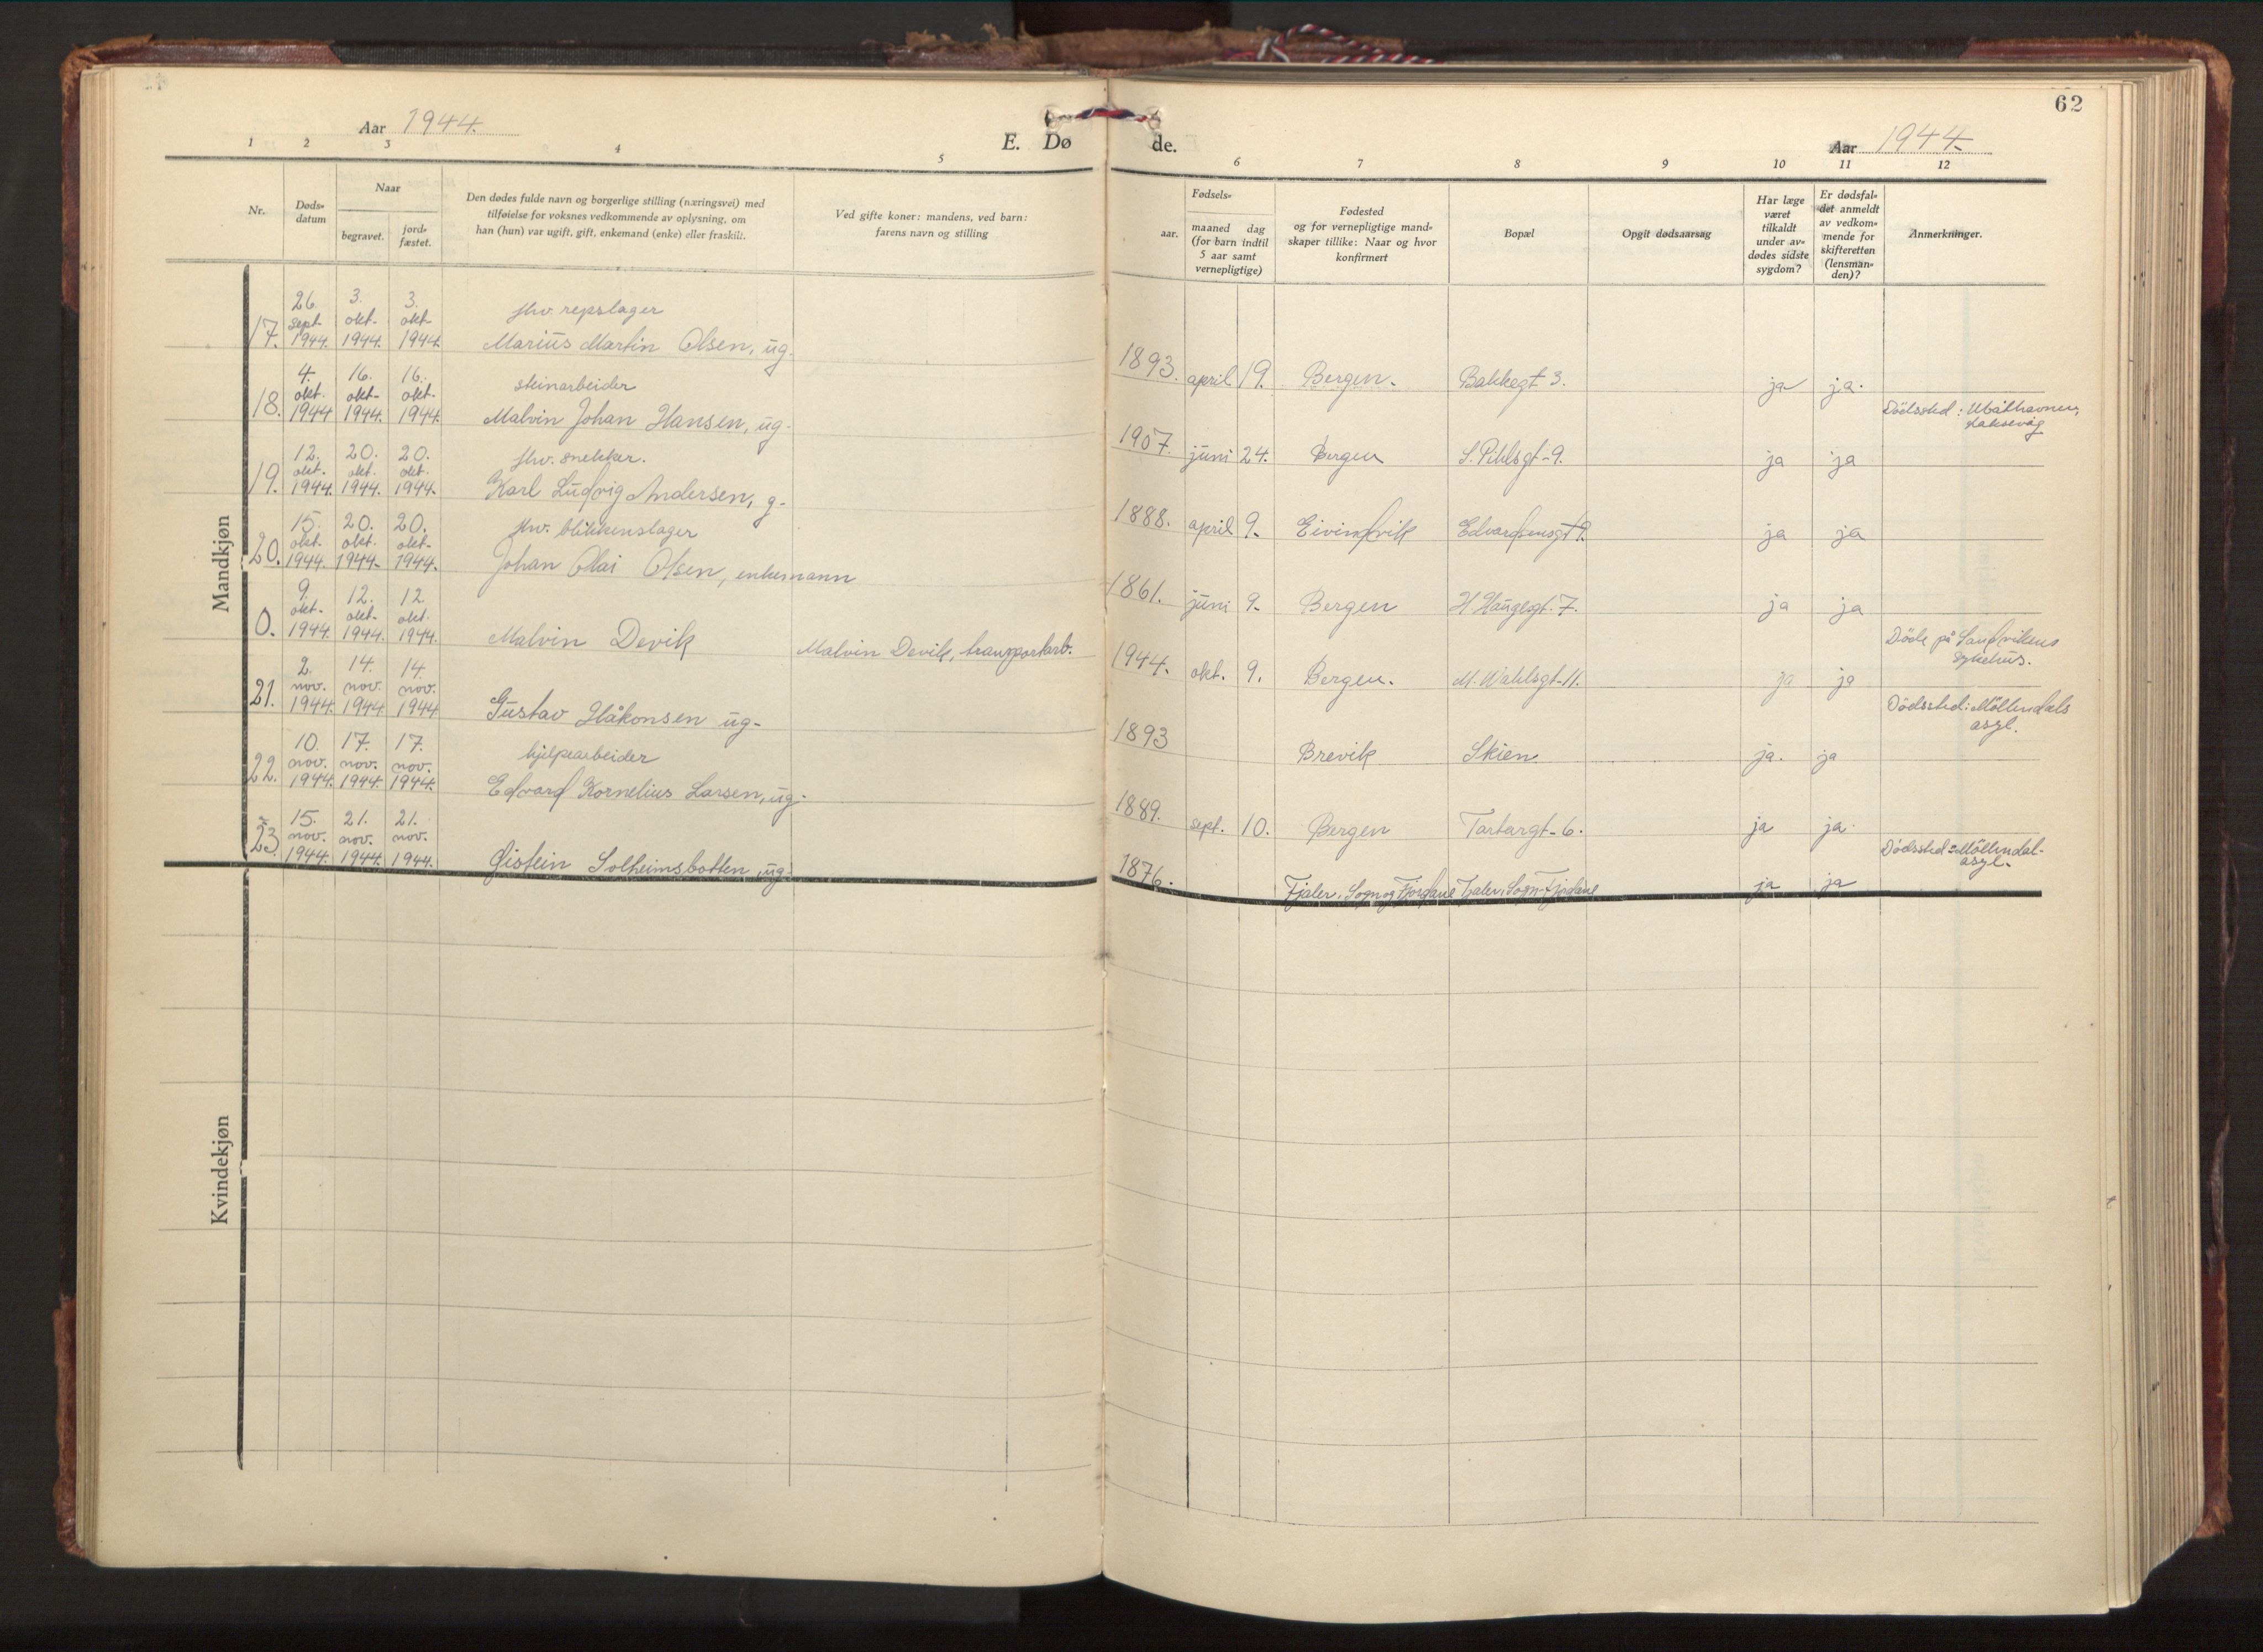 62
Aar 1944.
E. Dø de.
Aar 1944.
1 2 3 4 5 6 7 8 9 10 11 12
Nr.
Døds-
datum
Naar
begravet.
jord-
fæstet.
Den dødes fulde navn og borgerlige stilling (næringsvei) med
tilføielse for voksnes vedkommende av oplysning, om
han (hun) var ugift, gift, enkemand (enke) eller fraskilt.
Ved gifte koner: mandens, ved barn:
farens navn og stilling
Fødsels-
aar.
maaned dag
(for barn indtil
5 aar samt
vernepligtige)
Fødested
og for vernepligtige mand-
skaper tillike: Naar og hvor
konfirmert
Bopæl
Opgit dødsaarsag
Har læge
været
tilkaldt
under av-
dødes sidste
sygdom?
Er dødsfal-
det anmeldt
av vedkom-
mende for
skifteretten
(lensman-
den)?
Anmerkninger.
Mandkjøn
26. 3. 3. fhv. repslager
sept. okt. okt.
17. 1944. 1944. 1944. Marius Martin Olsen, ug. 1893. april 19. Bergen. Bakkegt 3. ja ja.
4. 16. 16. steinarbeider
okt. okt. okt.
18. 1944 1944. 1944. Malvin Johan Hansen, ug. 1907. juni 24. Bergen S. Pihlsgt. 9. ja ja
Dödssted: Ubåthavnen,
Laksevåg
12. 20. 20. fhv. snekker.
okt. okt. okt.
19. 1944. 1944. 1944. Karl Ludvig Andersen, g. 1888. april 9. Eivindvik Edvardsensgt 9. ja ja
15. 20. 20. fhv. blikkenslager
okt. okt. okt.
20. 1944. 1944. 1944. Johan Olai Olsen, enkemann 1861. juni 9. Bergen H. Haugesgt. 7. ja ja
9. 12. 12.
okt. okt. okt.
0. 1944. 1944. 1944. Malvin Devik Malvin Devik, transportarb. 1944. okt. 9. Bergen. M. Wahlsgt. 11. ja ja
Döde på Sandvikens
sykehus.
2. 14. 14.
nov. nov. nov.
21. 1944. 1944 1944 Gustav Håkonsen ug. 1893 Brevik Skien ja. ja
Dödssted: Möllendals
asyl.
10. 17. 17. hjelpearbeider
nov. nov. nov.
22. 1944. 1944. 1944. Edvard Kornelius Larsen, ug. 1889. sept. 10. Bergen Tartargt. 6. ja ja.
15. 21. 21.
nov. nov. nov.
23. 1944. 1944. 1944. Øistein Solheimsbotten, ug. 1876. Fjaler, Sogn og Fjordane Fjaler, Sogn-Fjordane ja ja
Dödssted: Möllendal-
asyl.
Kvindekjøn